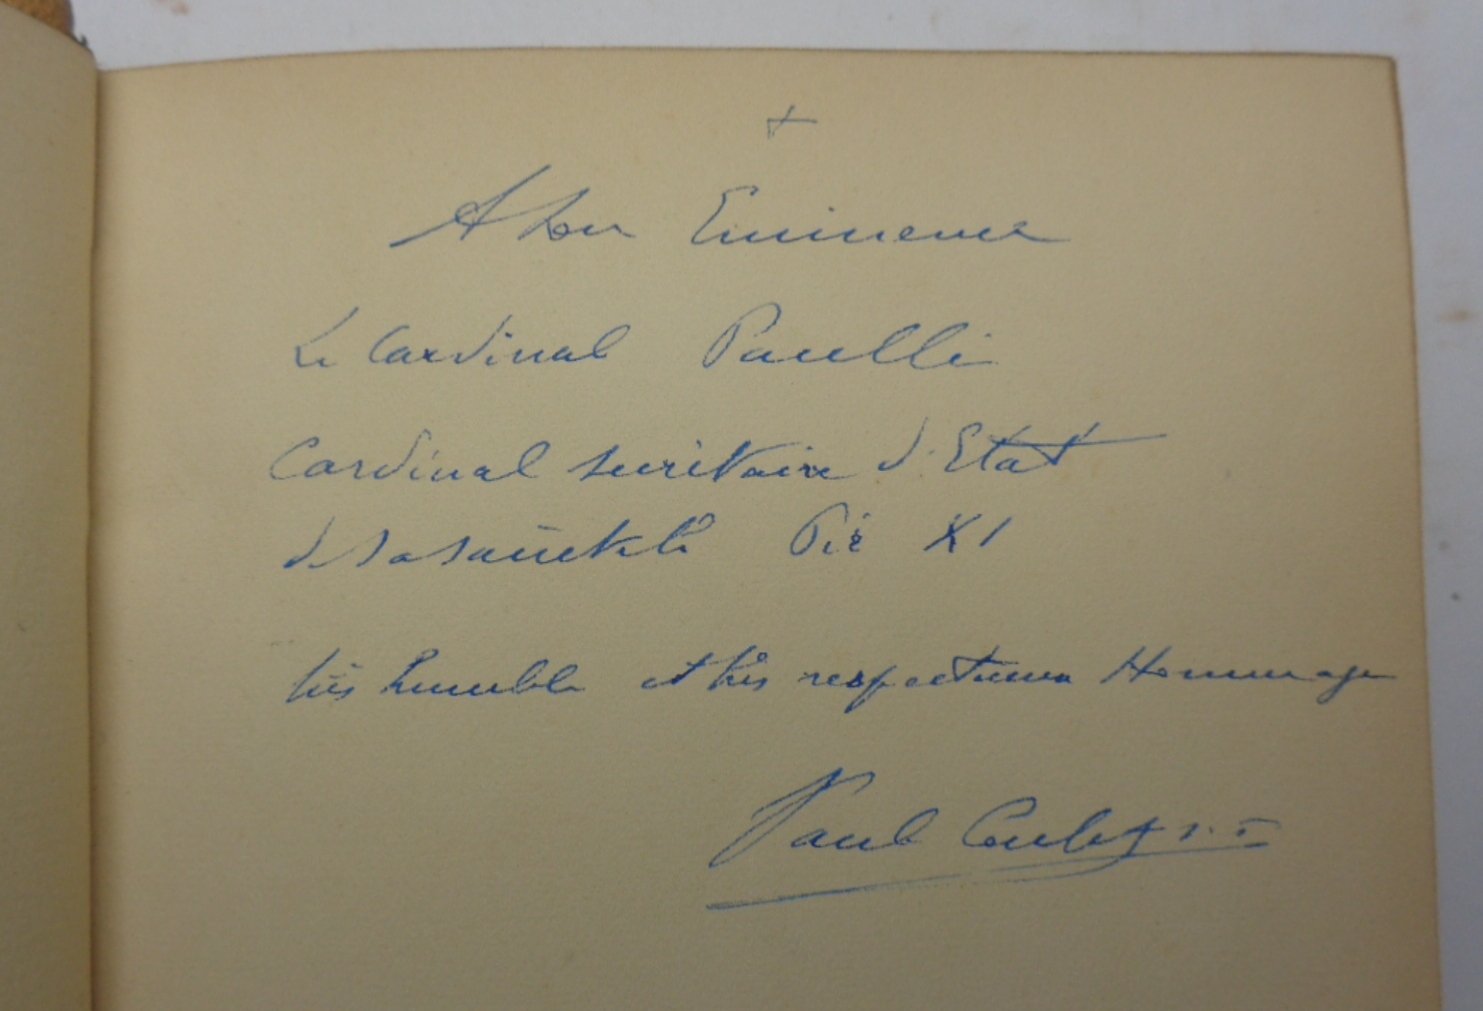 +
A Son Eminence
Le Cardinal Pacelli
Cardinal secrétaire d'Etat
de sa sainteté Pie XI
très humble et très respectueux Hommage
Paul s.j.